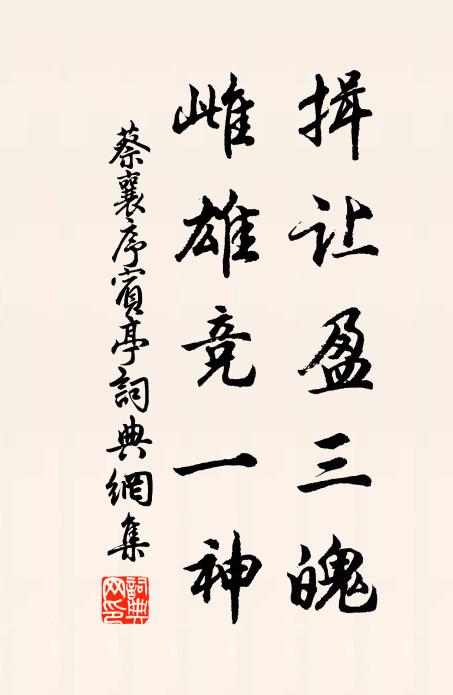 揖让盈三魄
雌雄竞一神
蔡襄序賓亭詞典網集
詞典网印